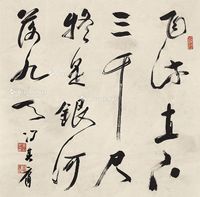 飛流直下
三千尺
疑是銀河
落九天 馮其庸